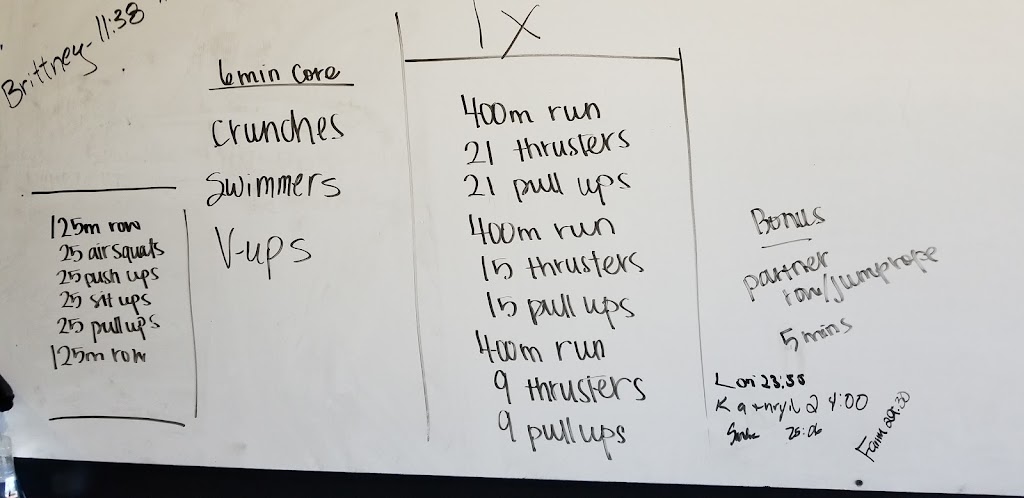 Brittney-11:38
125m row
25 air squats
25 push ups
25 sit ups
25 pull ups
125m row
6min core
Crunches
Swimmers
V-ups
1X
400m run
21 thrusters
21 pull ups
400m run
15 thrusters
15 pull ups
400m run
9 thrusters
9 pull ups
Bonus
partner
row/jumprope
5 mins
Lori 23:58
24:00
25:06